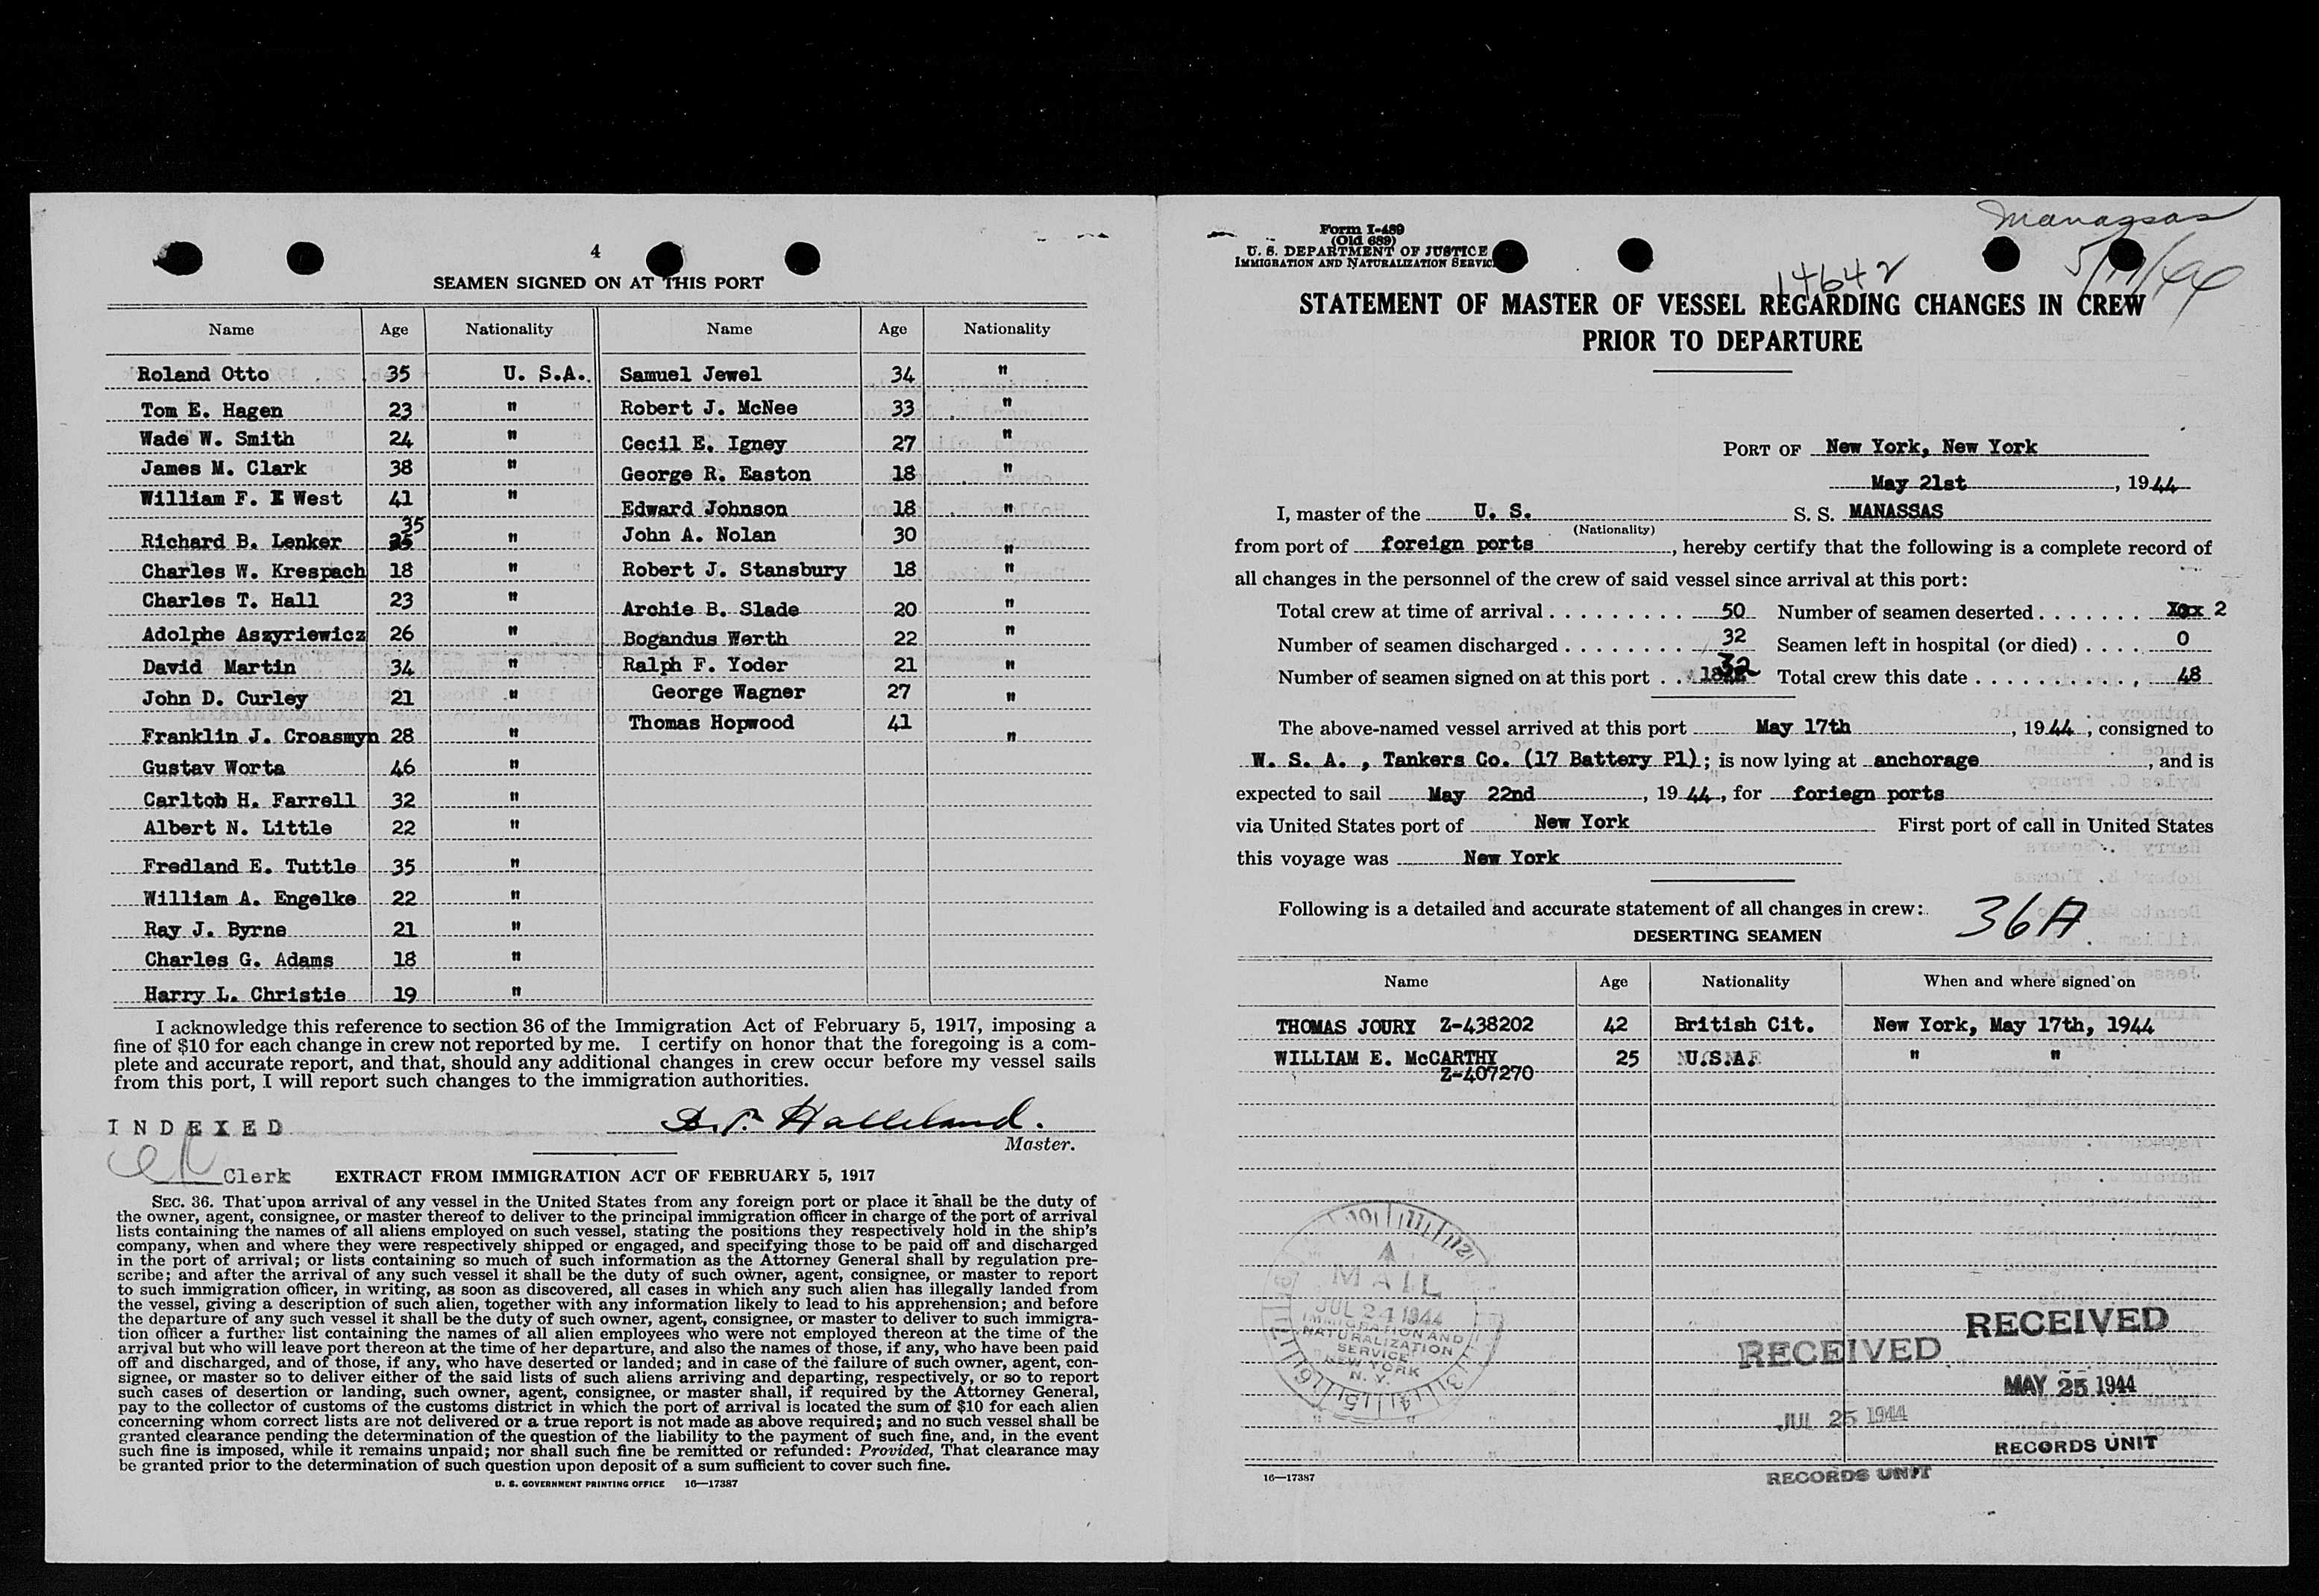 4
SEAMEN SIGNED ON AT THIS PORT
Name Age Nationality Name Age Nationality
Roland Otto 35 U. S.A. Samuel Jewel 34 "
Tom E. Hagen 23 " Robert J. McNee 33 "
Wade W. Smith 24 " Cecil E. Igney 27 "
James M. Clark 38 " George R. Easton 18 "
William F. E West 41 " Edward Johnson 18 "
35
Richard B. Lenker " John A. Nolan 30 "
Charles W. Krespach 18 " Robert J. Stansbury 18 "
Charles T. Hall 23 " Archie B. Slade 20 "
Adolphe Aszyriewicz 26 " Bogandus Werth 22 "
David Martin 34 " Ralph F. Yoder 21 "
John D. Curley 21 " George Wagner 27 "
Franklin J. Croasmyn 28 " Thomas Hopwood 41 "
Gustav Worta 46 "
Carltoh H. Farrell 32 "
Albert N. Little 22 "
Fredland E. Tuttle 35 "
William A. Engelke 22 "
Ray J. Byrne 21 "
Charles G. Adams 18 "
Harry L. Christie 19 "
I acknowledge this reference to section 36 of the Immigration Act of February 5, 1917, imposing a
fine of $10 for each change in crew not reported by me. I certify on honor that the foregoing is a com-
plete and accurate report, and that, should any additional changes in crew occur before my vessel sails
from this port, I will report such changes to the immigration authorities.
INDEXED
Halleland.
Master.
Clerk
EXTRACT FROM IMMIGRATION ACT OF FEBRUARY 5, 1917
SEC. 36. That upon arrival of any vessel in the United States from any foreign port or place it shall be the duty of
the owner, agent, consignee, or master thereof to deliver to the principal immigration officer in charge of the port of arrival
lists containing the names of all aliens employed on such vessel, stating the positions they respectively hold in the ship's
company, when and where they were respectively shipped or engaged, and specifying those to be paid off and discharged
in the port of arrival; or lists containing so much of such information as the Attorney General shall by regulation pre-
scribe; and after the arrival of any such vessel it shall be the duty of such owner, agent, consignee, or master to report
to such immigration officer, in writing, as soon as discovered, all cases in which any such alien has illegally landed from
the vessel, giving a description of such alien, together with any information likely to lead to his apprehension; and before
the departure of any such vessel it shall be the duty of such owner, agent, consignee, or master to deliver to such immigra-
tion officer a further list containing the names of all alien employees who were not employed thereon at the time of the
arrival but who will leave port thereon at the time of her departure, and also the names of those, if any, who have been paid
off and discharged, and of those, if any, who have deserted or landed; and in case of the failure of such owner, agent, con-
signee, or master so to deliver either of the said lists of such aliens arriving and departing, respectively, or so to report
such cases of desertion or landing, such owner, agent, consignee, or master shall, if required by the Attorney General,
pay to the collector of customs of the customs district in which the port of arrival is located the sum of $10 for each alien
concerning whom correct lists are not delivered or a true report is not made as above required; and no such vessel shall be
granted clearance pending the determination of the question of the liability to the payment of such fine, and, in the event
such fine is imposed, while it remains unpaid; nor shall such fine be remitted or refunded: Provided, That clearance may
be granted prior to the determination of such question upon deposit of a sum sufficient to cover such fine.
U. S. GOVERNMENT PRINTING OFFICE 16—17387
Manassas
5/17/44
Form I-489
(Old 689)
U. S. DEPARTMENT OF JUSTICE
IMMIGRATION AND NATURALIZATION SERVIC
14642
STATEMENT OF MASTER OF VESSEL REGARDING CHANGES IN CREW
PRIOR TO DEPARTURE
PORT OF New York, New York
May 21st, 1944
I, master of the U. S. S. S. MANASSAS
(Nationality)
from port of foreign ports, hereby certify that the following is a complete record of
all changes in the personnel of the crew of said vessel since arrival at this port:
Total crew at time of arrival 50 Number of seamen deserted 2
Number of seamen discharged 32 Seamen left in hospital (or died) 0
Number of seamen signed on at this port 32 Total crew this date 48
The above-named vessel arrived at this port May 17th, 1944, consigned to
W. S. A., Tankers Co. (17 Battery Pl); is now lying at anchorage, and is
expected to sail May 22nd, 1944, for foriegn ports
via United States port of New York First port of call in United States
this voyage was New York
Following is a detailed and accurate statement of all changes in crew:
36A
DESERTING SEAMEN
Name Age Nationality When and where signed on
THOMAS JOURY Z-438202 42 British Cit. New York, May 17th, 1944
WILLIAM E. McCARTHY 25 U.S.A. " "
Z-407270
A
MAIL
JUL 24 1944
IMMIGRATION AND
NATURALIZATION
SERVICE
NEW YORK
N. Y.
RECEIVED
MAY 25 1944
RECORDS UNIT
RECEIVED
JUL 25 1944
RECORDS UNIT
16—17387